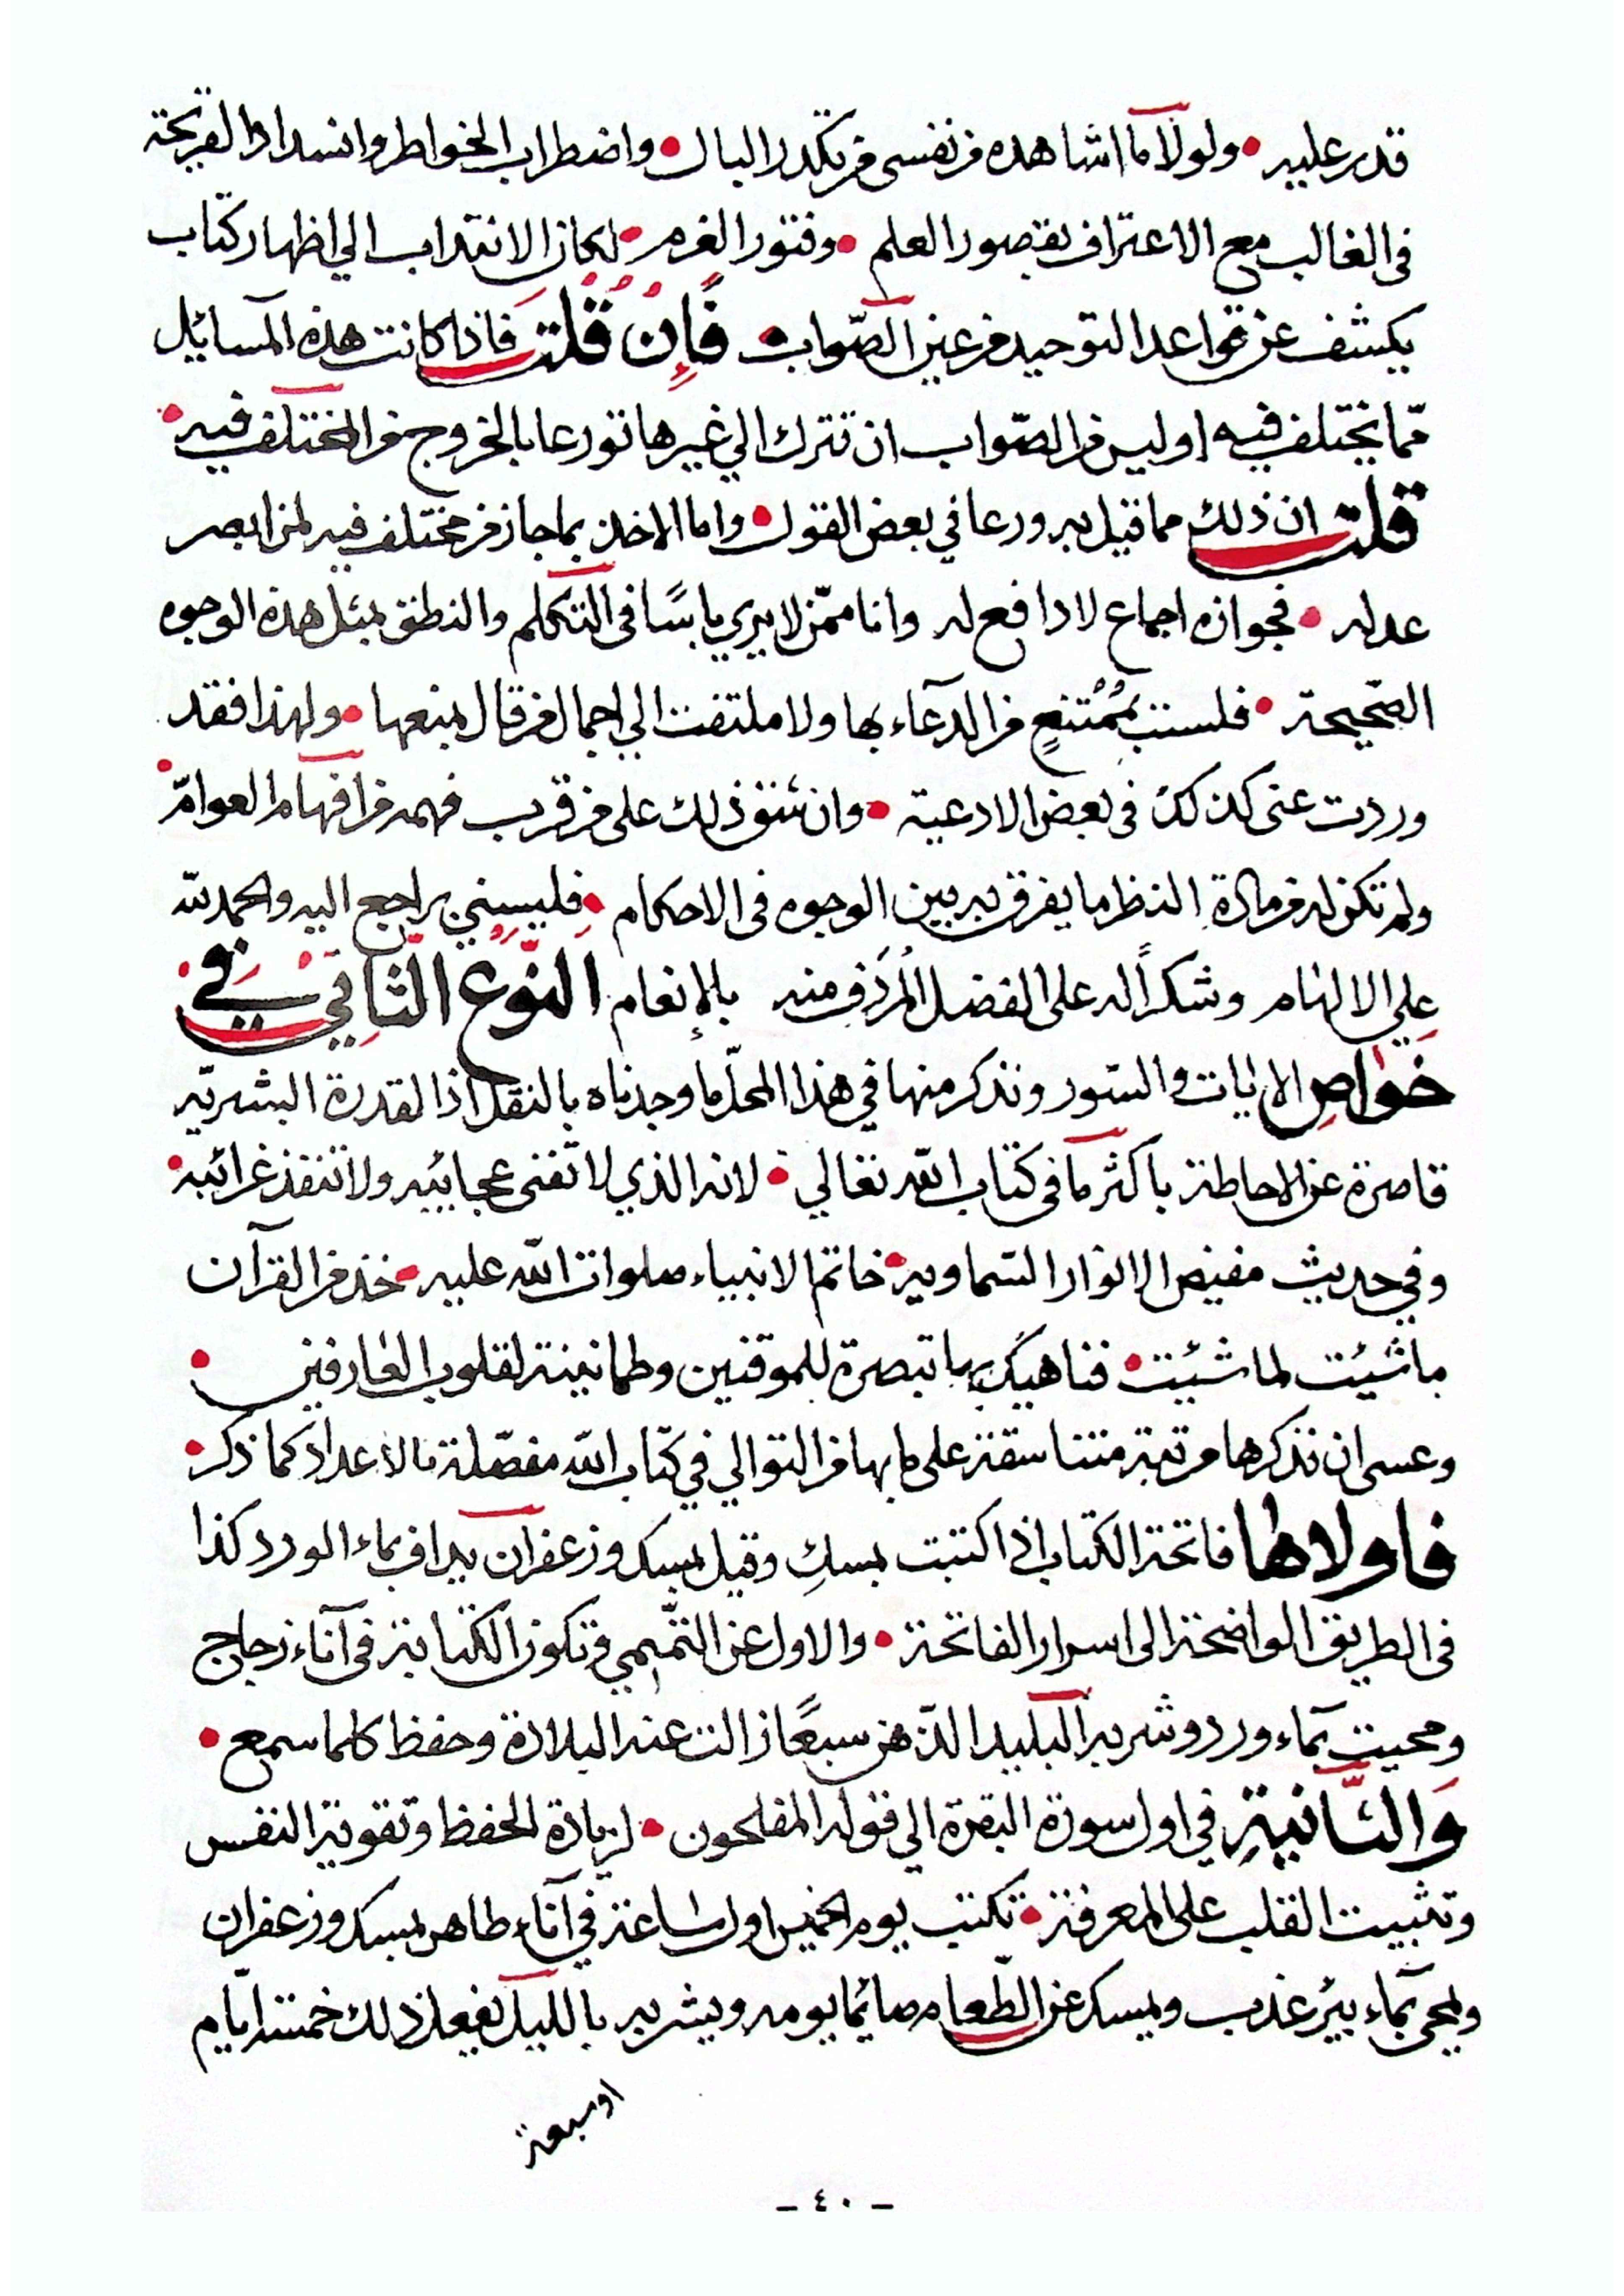 قدر عليه • ولولا ما اشاهده من نفسى من تكدر البال • واضطراب الخواطر وانسداد القريحة
فى الغالب مع الاعتراف بقصور العلم • وفتور العزم • لكان الانتداب الي اظهار كتاب
يكشف عن قواعد التوحيد من عين الصّواب • فَإِنْ قُلْتَ فاذا كانت هذه المسائيل
ممّا يختلف فيه اوليس من الصّواب ان تترك الي غيرها تورعا بالخروج من المختلف فيه •
قلت ان ذلك مما قيل به ورعا في بعض القول • واما الاخذ بما جاز من مختلف فيه لمن ابصر
عدله • فجوازه اجماع لا دافع له وانا ممّن لا يري باسًا فى التكلم والنطق بمثل هذه الوجوه
الصّحيحة • فلست بمُمْتنعٍ من الدعاء بها ولا ملتفت الي اجمال من قال بمنعها • ولهذا فقد
وردت عنى كذلك فى بعض الادعية • وان شق ذلك على من قرب فهمه من افهام العوامّ •
ولم تكن له من مادة النظر ما يفرق به بين الوجوه فى الاحكام • فليسني براجع اليه والحمد لله
علي الالهام وشكراً له على الفضل المُردَف منه بالإنعام النّوع الثّاني في
خواص الايات والسّور ونذكر منها في هذا المحلّ ما وجدناه بالنقل اذ القدرة البشريّه
قاصرة عن الاحاطة باكثر ما فى كتاب الله تعالي • لانه الذي لا تفنى عجاييبه ولا تنفذ غرائبه •
وفي حديث مفيض الانوار السّماويه • خاتم الانبياء صلوات الله عليه • خذ من القرآن
ما شيئت لما شيئت • فناهيك بها تبصرة للموقنين وطمانينة لقلوب العارفين •
وعسى ان نذكرها مرتبة متناسقة على ما بها من التوالي في كتاب الله مفصّلة بالاعداد كما ذكر •
فاولاها فاتحة الكتاب اذا كتبت بمسكٍ وقيل بمسك وزعفران يداف بماء الورد كذا
فى الطريق الواضحة الى اسرار الفاتحة • والاول عن التّميمي وتكون الكتابة فى آناء زجاج
ومحيت بماء ورد وشربه البليد الذهن سبعًا زالت عنه البلادة وحفظ كلما سمع •
وَالثَّانيةِ في اول سورة البقرة الي قوله المفلحون • لزيادة الحفظ وتقوية النفس
وتثبيت القلب على المعرفة • تكتب يوم الخميس اول ساعة في آناء طاهر بمسك وزعفران
ويمحى بماء بيْر عذب ويمسك عن الطّعام صائما يومه ويشربه بالليل يفعل ذلك خمسة ايّام
او سبعة
- ٤٠ -